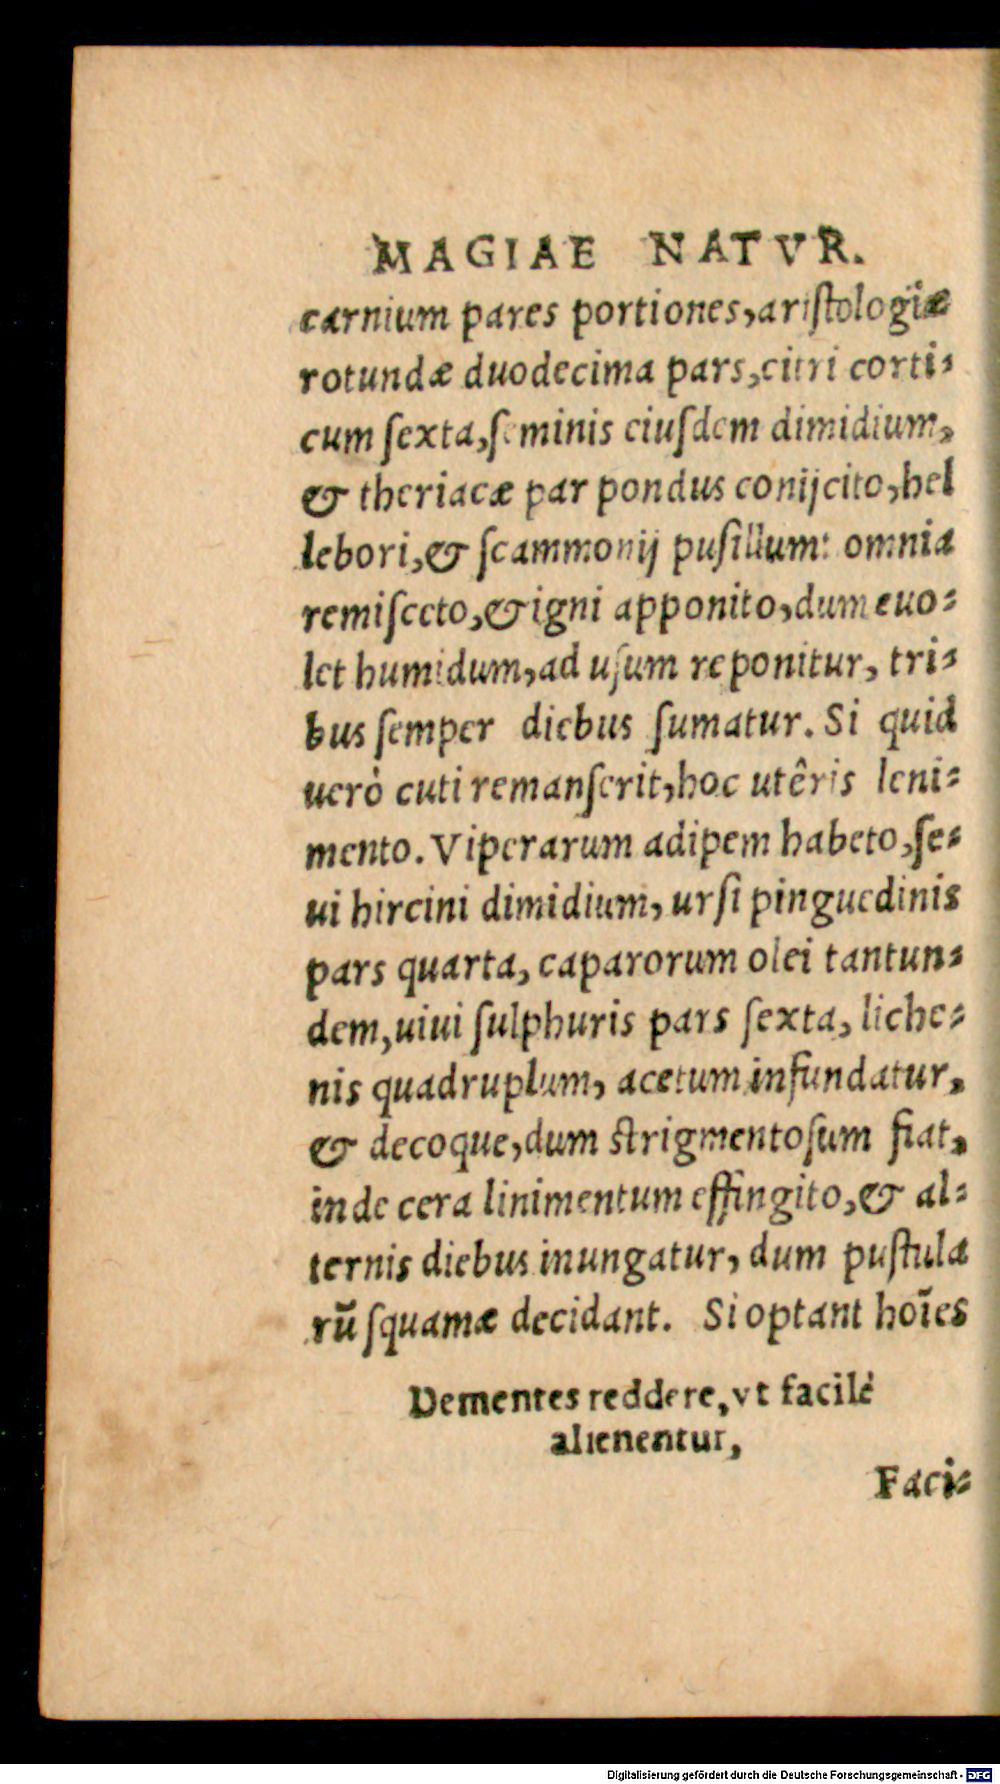 MAGIAE NATVR.
carnium pares portiones,ariſtologiæ
rotundæ duodecima pars,citri corti-
cum ſexta,ſeminis ciuſdem dimidium,
& theriacæ par pondus conijcito,hel
lebori,& ſcammonij puſillum: omnia
remiſceto,& igni apponito,dum euo-
let humidum,ad uſum reponitur, tri-
bus ſemper diebus ſumatur. Si quid
uerò cuti remanſerit,hoc utêris leni-
mento. Viperarum adipem habeto,ſe-
ui hircini dimidium, urſi pinguedinis
pars quarta, caparorum olei tantun-
dem,uiui ſulphuris pars ſexta, liche-
nis quadruplum, acetum infundatur,
& decoque,dum ſtrigmentoſum fiat,
inde cera linimentum effingito,& al-
ternis diebus inungatur, dum puſtula
rū ſquamæ decidant. Si optant hoīes
Dementes reddere, vt facilè
alienentur,
Faci-
Digitalisierung gefördert durch die Deutsche Forschungsgemeinschaft - DFG